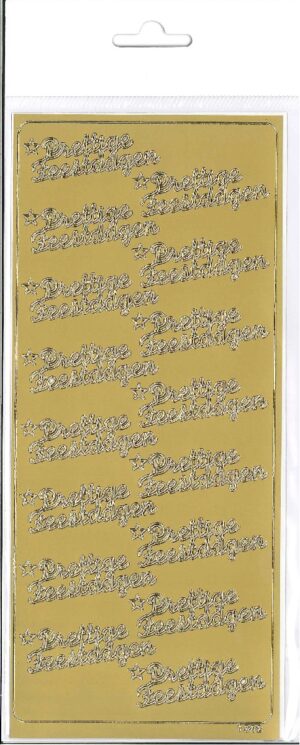 Prettige
Feestdagen
Prettige
Feestdagen
Prettige
Feestdagen
Prettige
Feestdagen
Prettige
Feestdagen
Prettige
Feestdagen
Prettige
Feestdagen
Prettige
Feestdagen
Prettige
Feestdagen
Prettige
Feestdagen
Prettige
Feestdagen
Prettige
Feestdagen
Prettige
Feestdagen
Prettige
Feestdagen
Prettige
Feestdagen
Prettige
Feestdagen